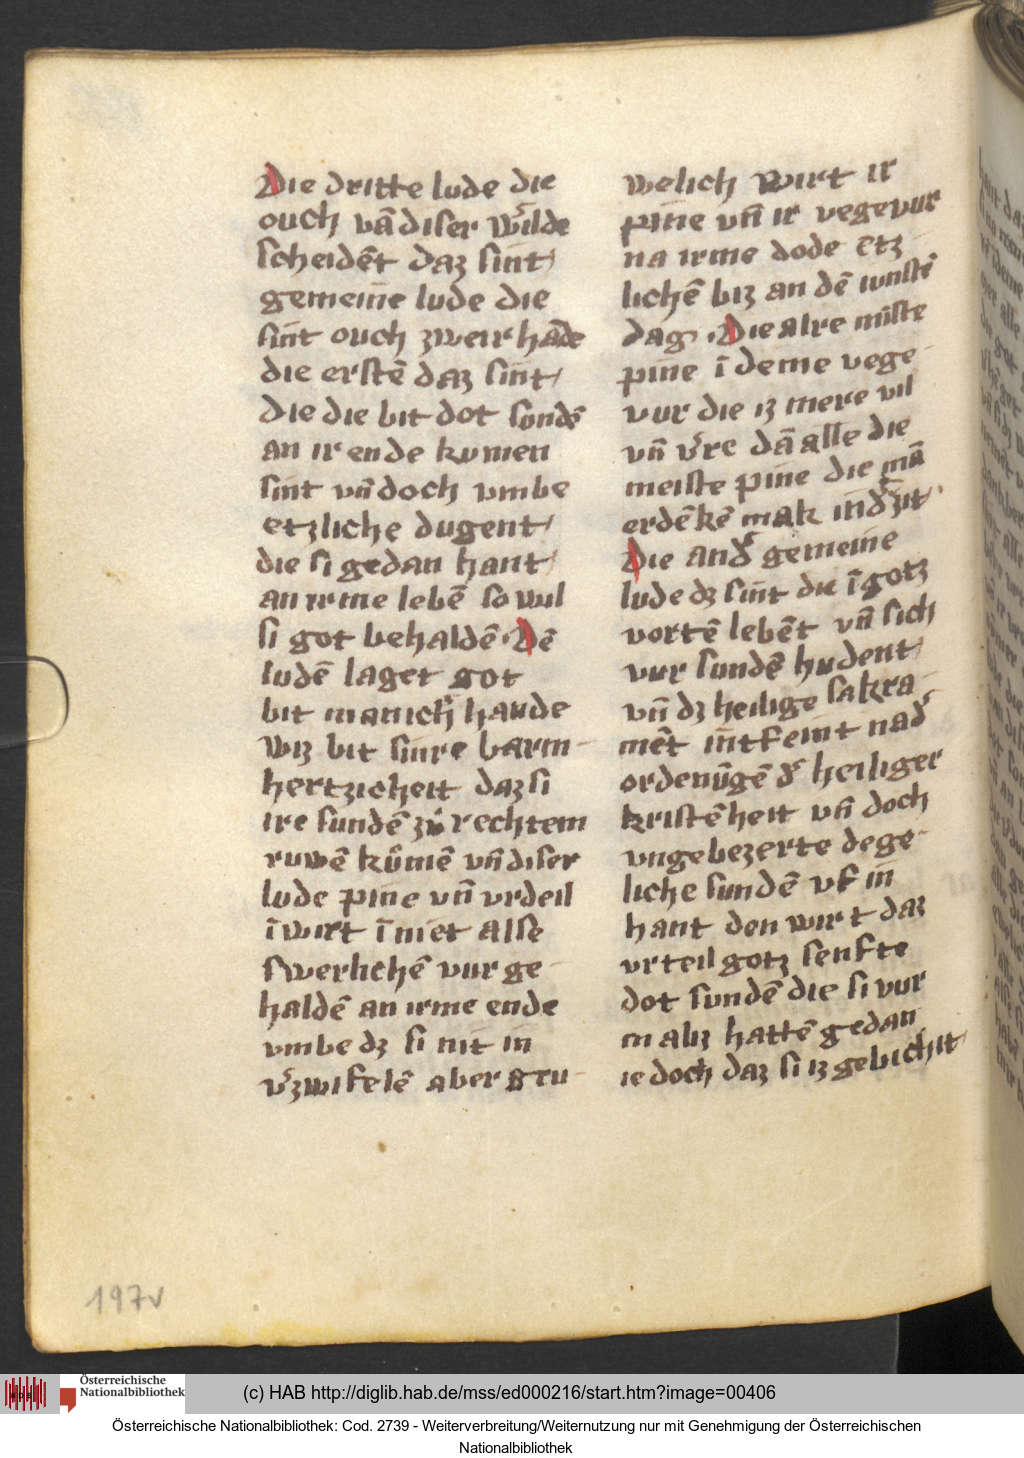 Die dritte lude die
ouch vā diser w̾ilde
scheidēt daz sint
gemeine lude die
sint ouch zweir hāde
die erstē daz sint
die die bit dot sondē
an ir ende kumen
sint vn̄ doch vmbe
etzliche dugent
die si gedan hant
an irme lebē so wil
si got behaldē · Dē
ludē laget got
bit manich̾ hande
wiz bit sinre barm
hertzicheit daz si
ire sundē zů rechtem
ruwē kůmē vn̄ diser
lude pine vn̄ vrdeil
ī wirt ī niet alse
swerlichē vur ge
haldē an irme ende
vmbe dz si nit in
v̾zwifelē aber gru
welich wirt ir
pine vn̄ ir vegevur
na irme dode etz
lichē biz an dē iunstē
dag · Die alre minste
pine ī deme vege
vur die iz mere vil
vn̄ v̾re dā alle die
meiste pine die mā
erdēkē mak in d̾ zit
Die and̾ gemeine
lude dz sint die ī gotz
vortē lebēt vn̄ sich
vur sundē hudent
vn̄ dz heilige sakra
mēt intfeint nad̾
ordenūgē d̾ heiliger
kristēheit vn̄ doch
vngebezerte dege
liche sundē vf in
hant den wirt daz
vrteil gotz senfte
dot sundē die si vur
m abz hattē gedan
ie doch daz si iz gebichit
197v
Österreichische
Nationalbibliothek
(c) HAB http://diglib.hab.de/mss/ed000216/start.htm?image=00406
Österreichische Nationalbibliothek: Cod. 2739 - Weiterverbreitung/Weiternutzung nur mit Genehmigung der Österreichischen
Nationalbibliothek